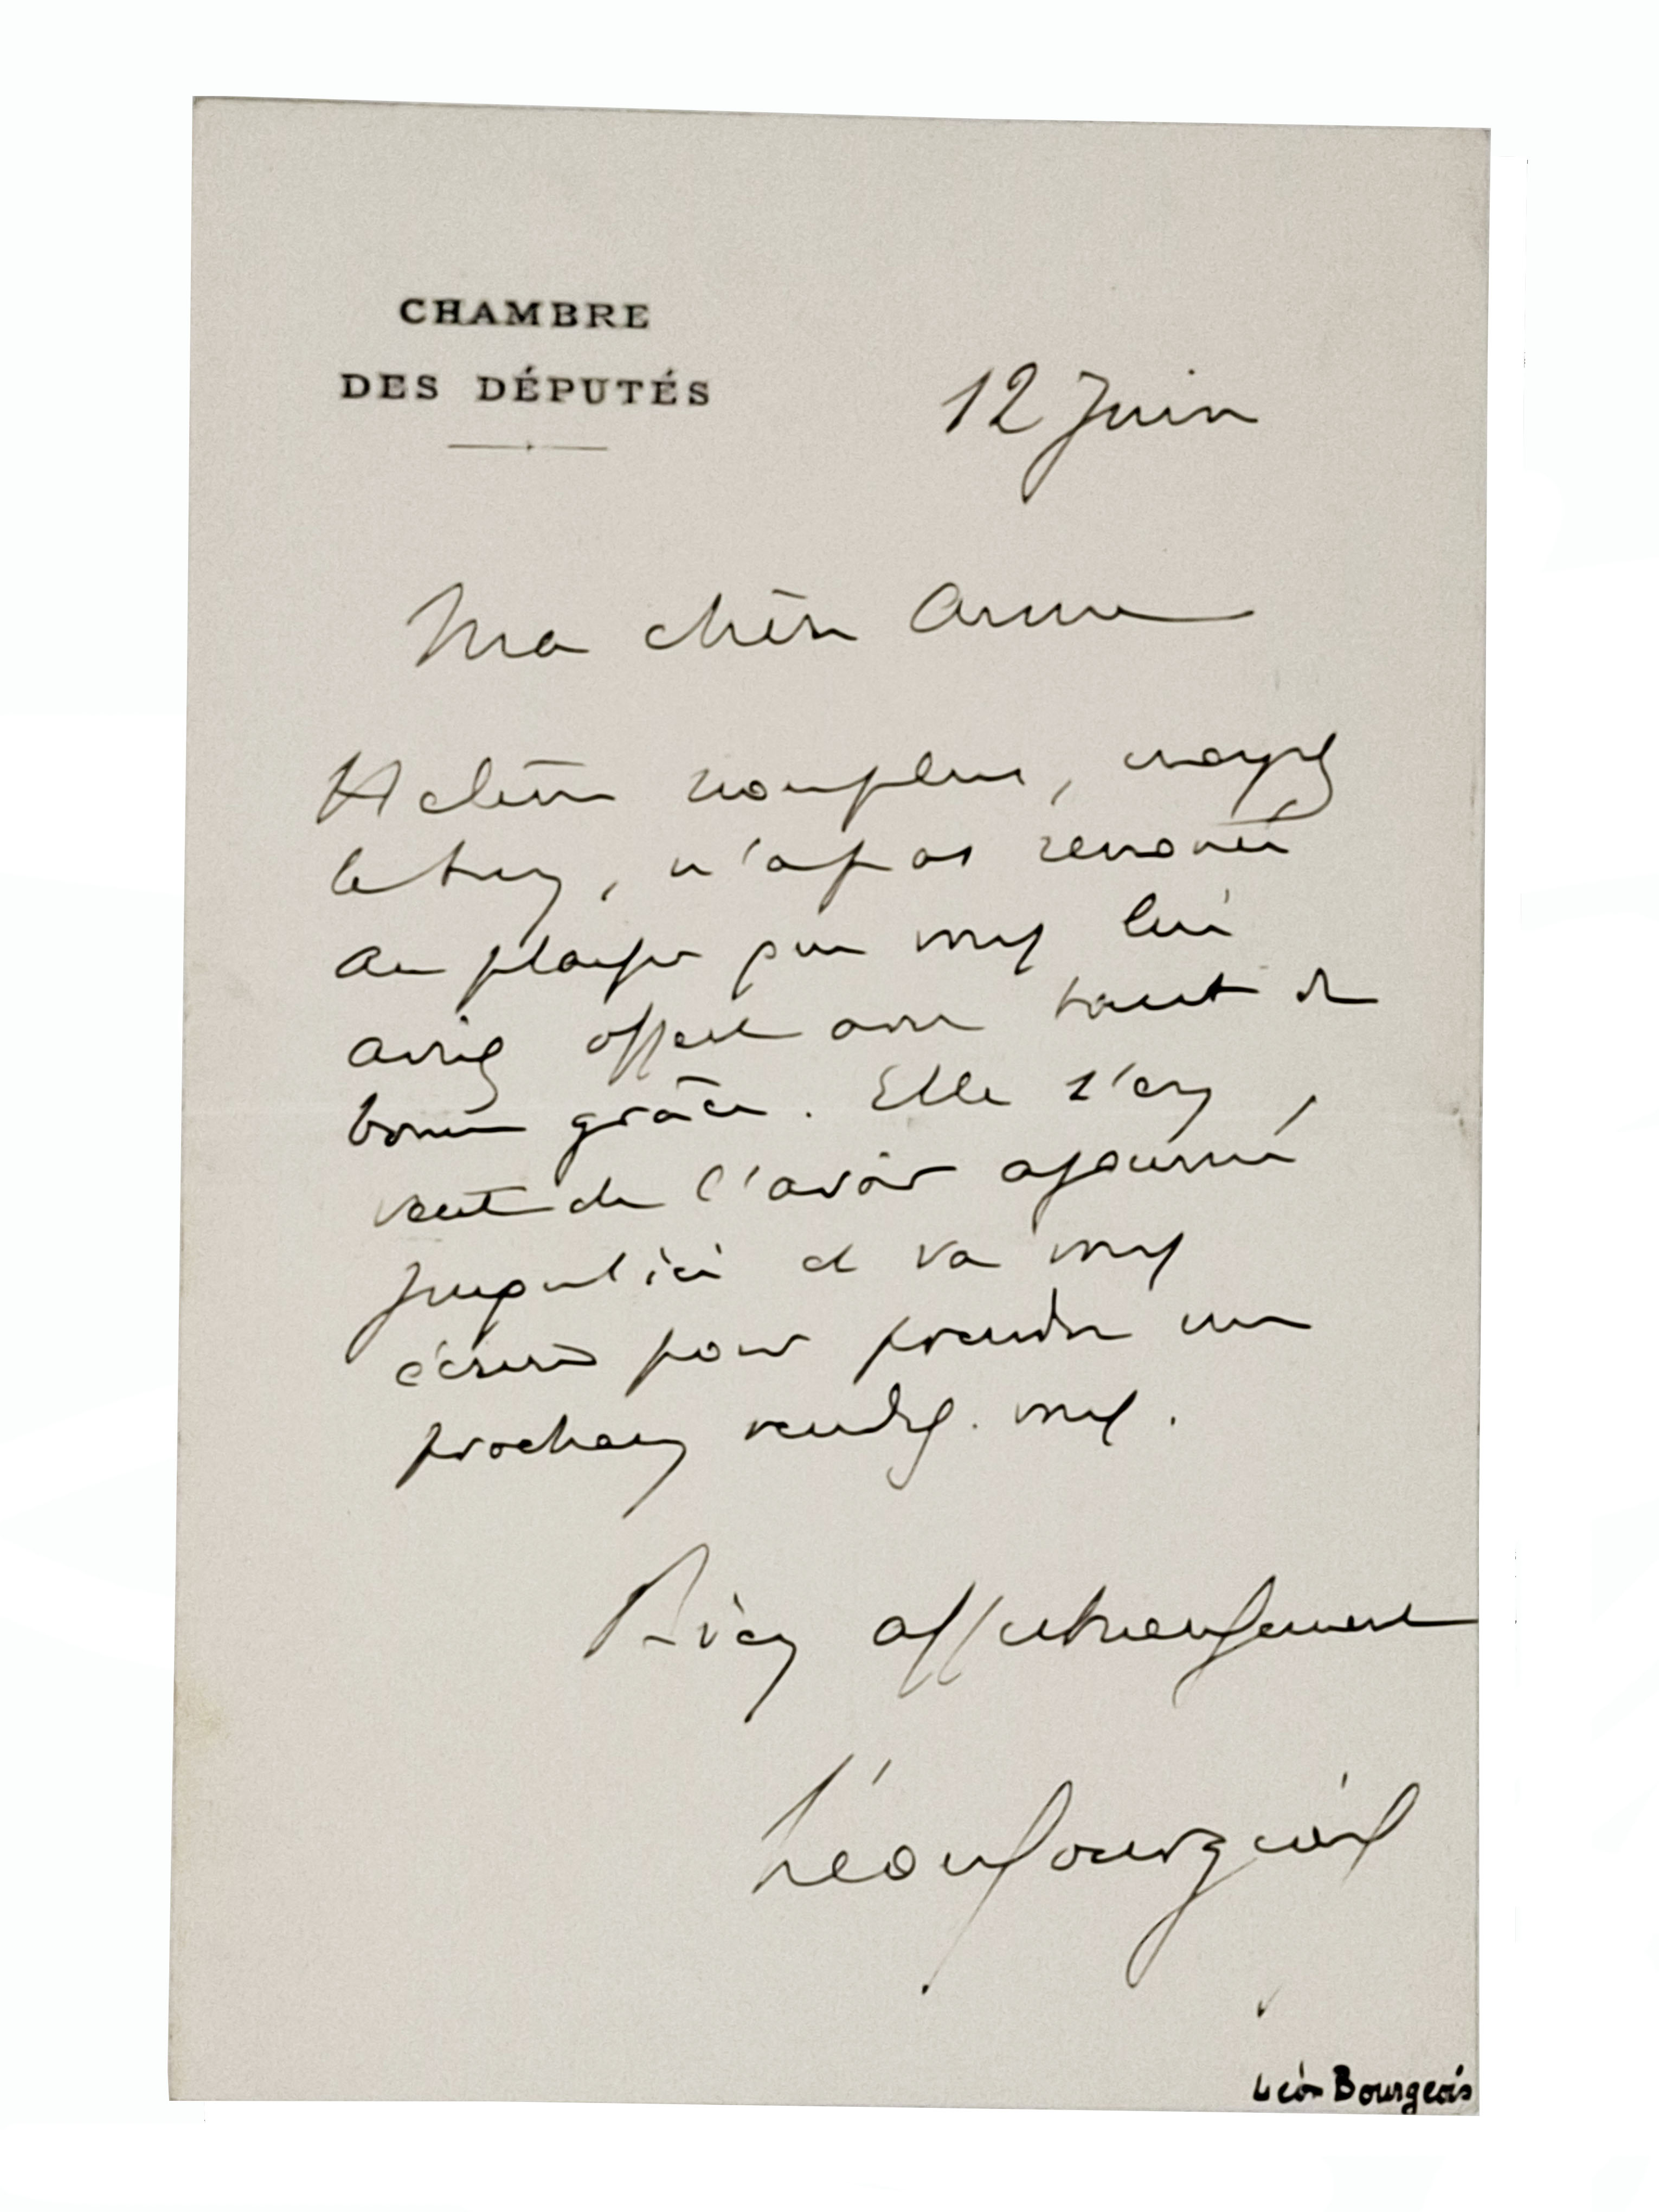 CHAMBRE
DES DÉPUTÉS
12 Juin
Ma chère Amie
Hélène non plus, croyez
le bien, n'a pas renoncé
au plaisir que vous lui
aviez offert avec tant de
bonne grâce. Elle s'en
veut de l'avoir ajourné
jusqu'ici et va vous
écrire pour prendre un
prochain rendez. vous.
Bien affectueusement
Léon Bourgeois
Léon Bourgeois